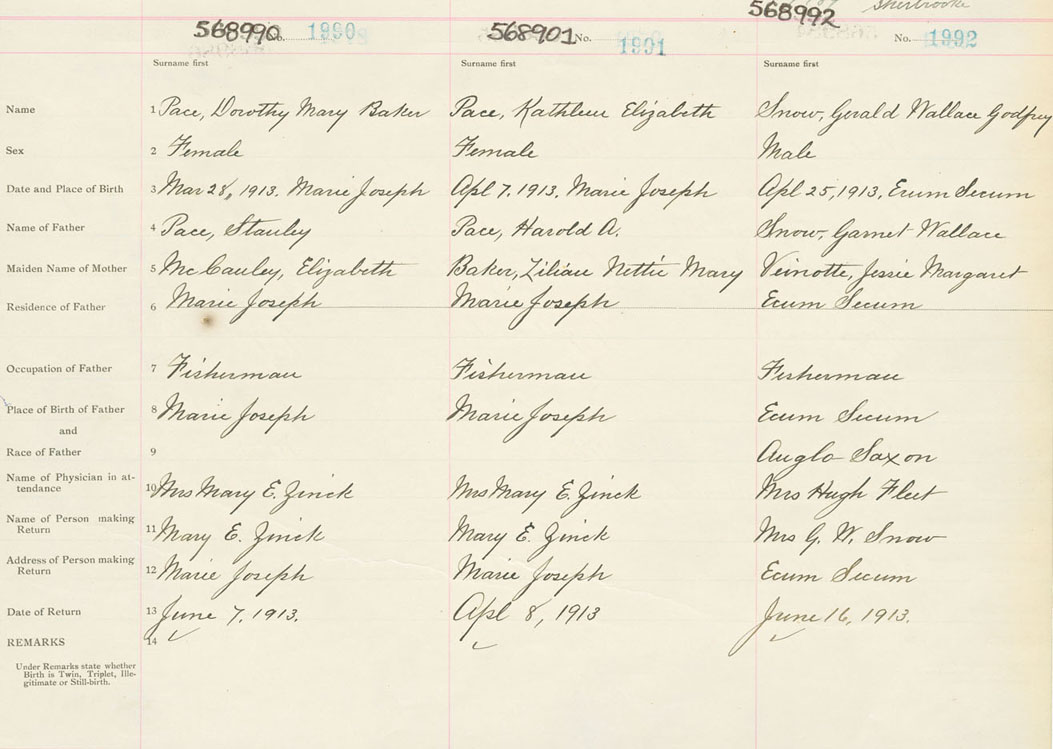 568992 Sherbrooke
568990 No. 1990 568901 No. 1991 No. 1992
Surname first Surname first Surname first
Name 1 Pace, Dorothy Mary Baker Pace, Kathleen Elizabeth Snow, Gerald Wallace Godfrey
Sex 2 Female Female Male
Date and Place of Birth 3 Mar 28, 1913. Marie Joseph Apl 7. 1913. Marie Joseph Apl 25, 1913, Ecum Secum
Name of Father 4 Pace, Stanley Pace, Harold A. Snow, Garnet Wallace
Maiden Name of Mother 5 McCauley, Elizabeth Baker, Lilian Nettie Mary Veinotte, Jessie Margaret
Residence of Father 6 Marie Joseph Marie Joseph Ecum Secum
Occupation of Father 7 Fisherman Fisherman Fisherman
Place of Birth of Father 8 Marie Joseph Marie Joseph Ecum Secum
and
Race of Father 9 Anglo Saxon
Name of Physician in at-
tendance 10 Mrs Mary E. Zinck Mrs Mary E. Zinck Mrs Hugh Fleet
Name of Person making
Return 11 Mary E. Zinck Mary E. Zinck Mrs G. W. Snow
Address of Person making
Return 12 Marie Joseph Marie Joseph Ecum Secum
Date of Return 13 June 7, 1913. Apl 8, 1913 June 16, 1913.
REMARKS 14
Under Remarks state whether
Birth is Twin, Triplet, Ille-
gitimate or Still-birth.